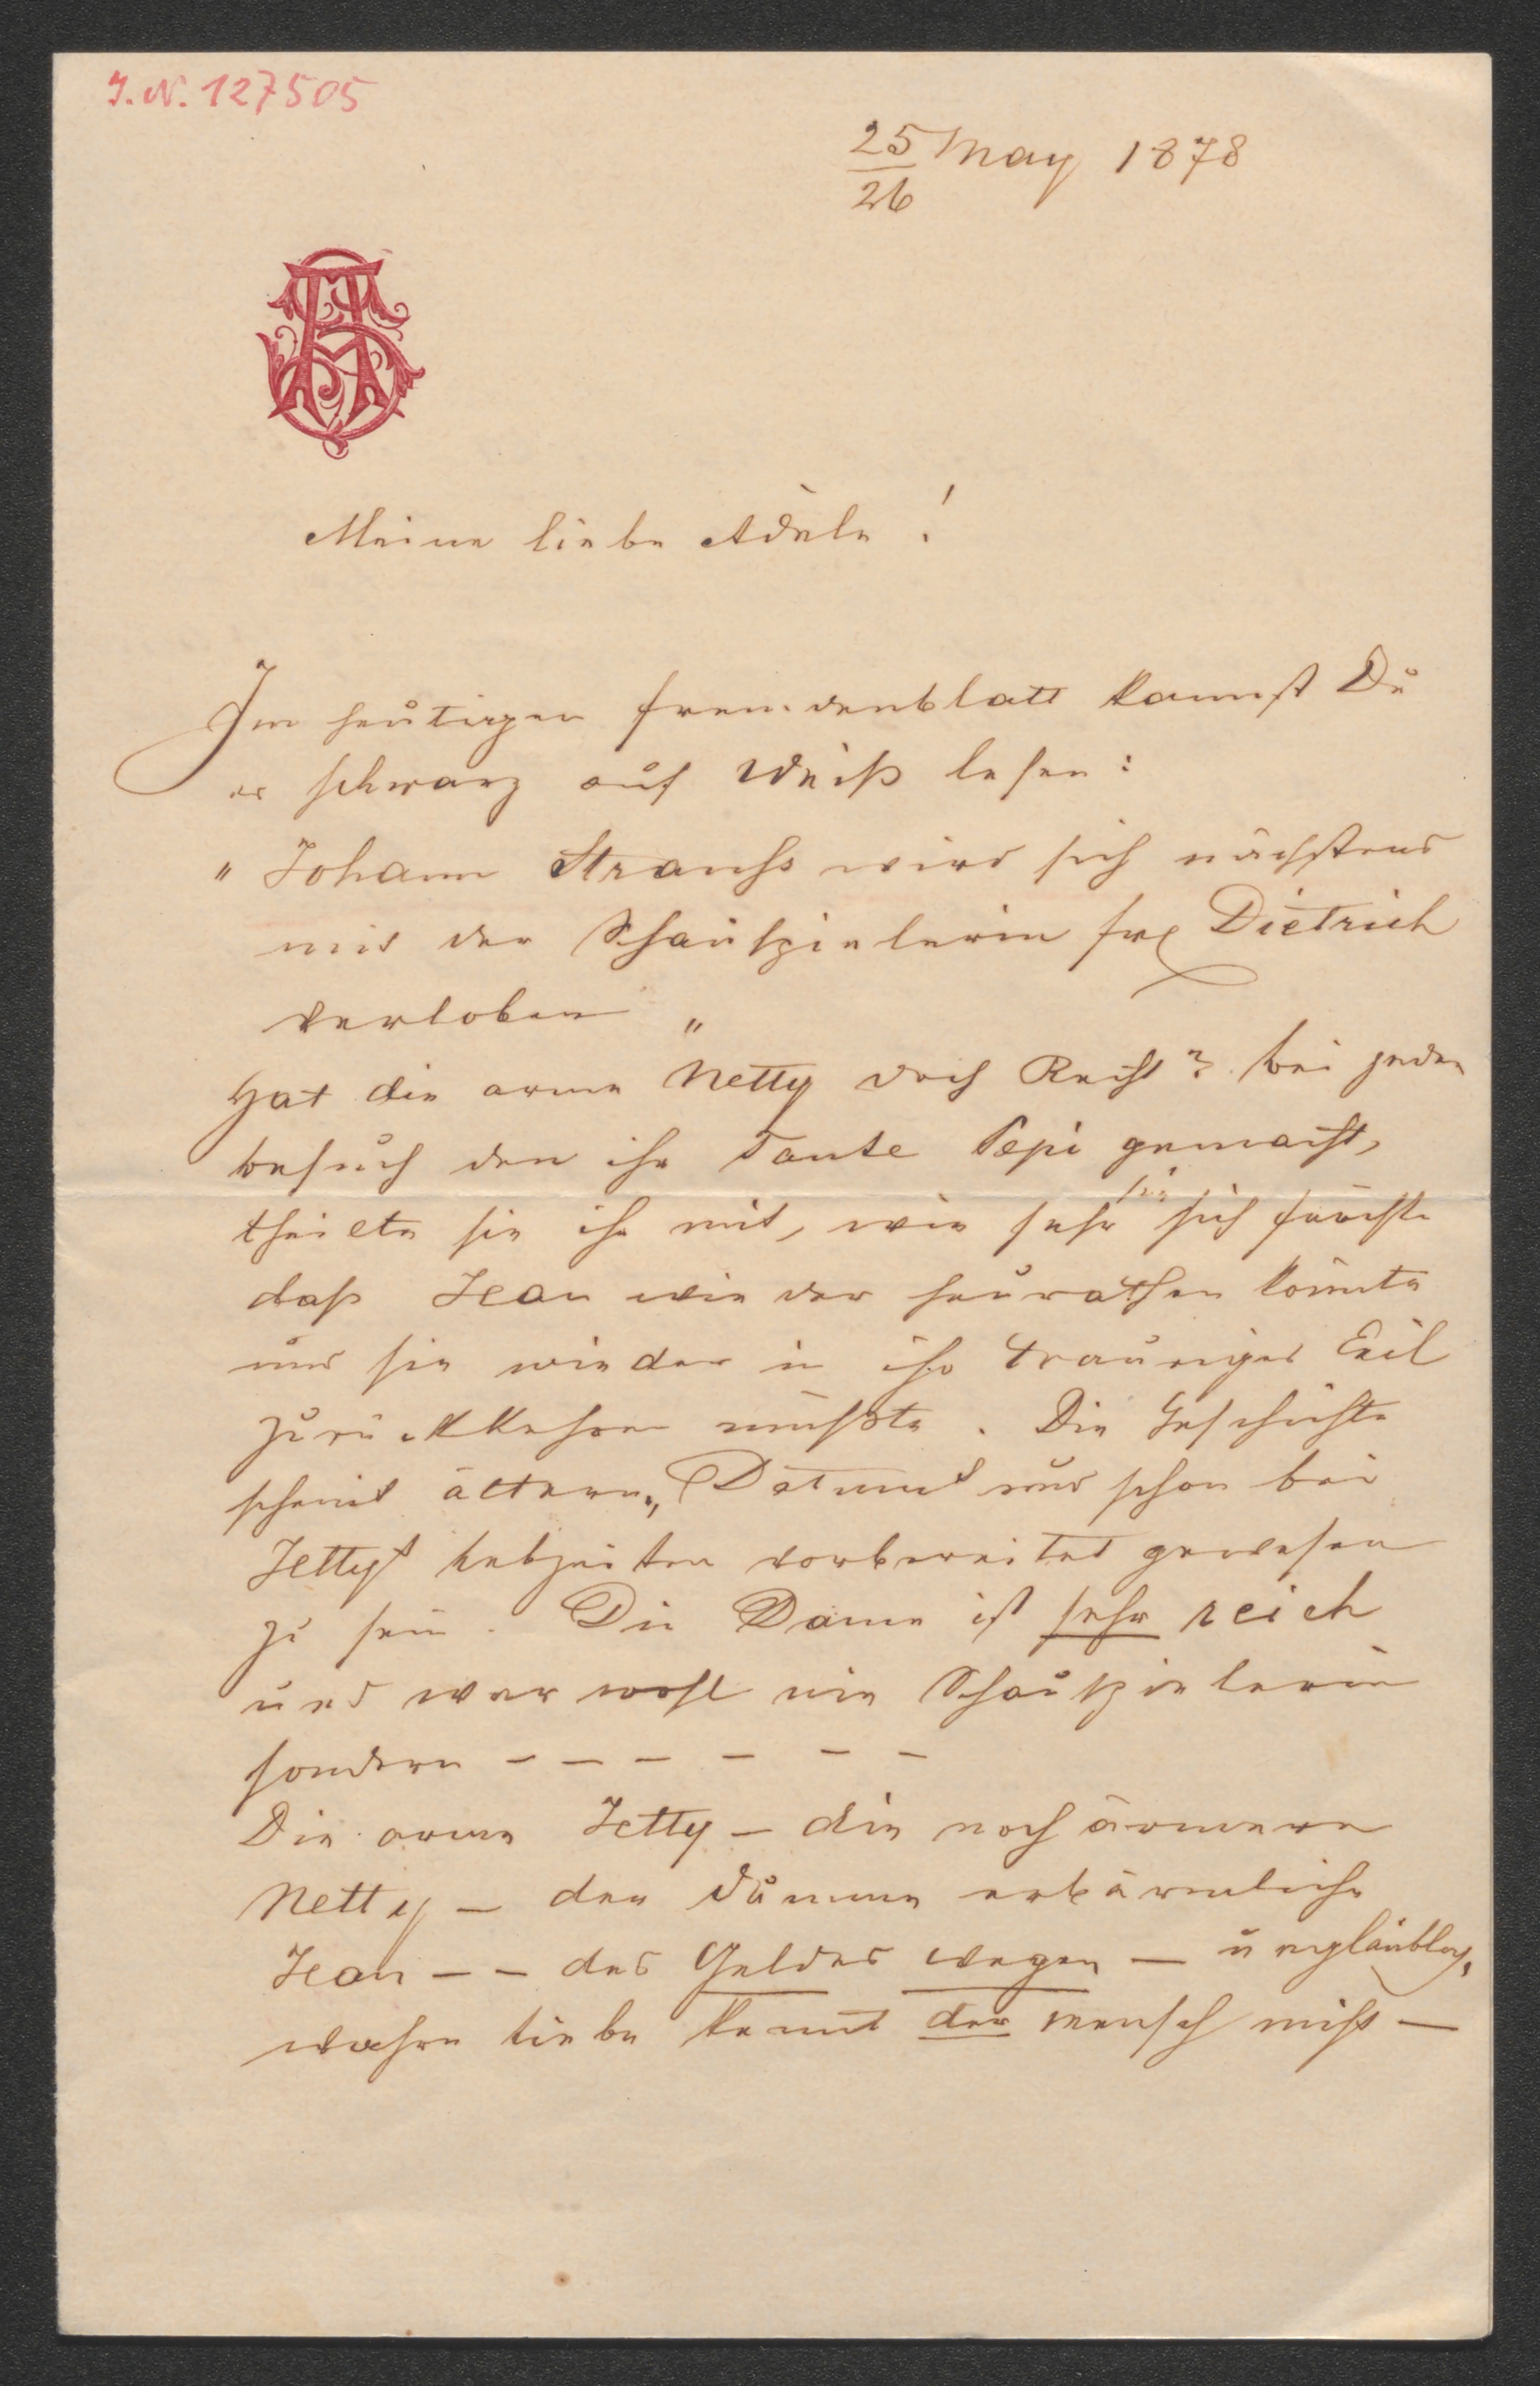 I.N. 127505
25 May 1878
26
Meine liebe Adèle!
Im heutigen Fremdenblatt kannst Du
es schwarz auf Weiß lesen:
"Johann Strauss wird sich nächstens
mit der Schauspielerin Frl Dietrich
verloben"
Hat die arme Netty doch Recht? bei jeden
Besuch den ihr Tante Pepi gemacht,
theilte sie ihr mit, wie sehr sie sich fürchte
daß Jean wieder heurathen könnte
und sie wieder in ihr trauriges Exil
zurückkehren müßte. Die Geschichte
scheint ältern Datums und schon bei
Jettys Lebzeiten vorbereitet gewesen
zu sein. Die Dame ist sehr reich
und war wohl nie Schauspielerin
sondern - - - - - -
Die arme Jetty – die noch ärmere
Netty – der dumme erbärmliche
Jean – – des Geldes wegen – unglaublich,
wahre Liebe kennt der Mensch nicht –